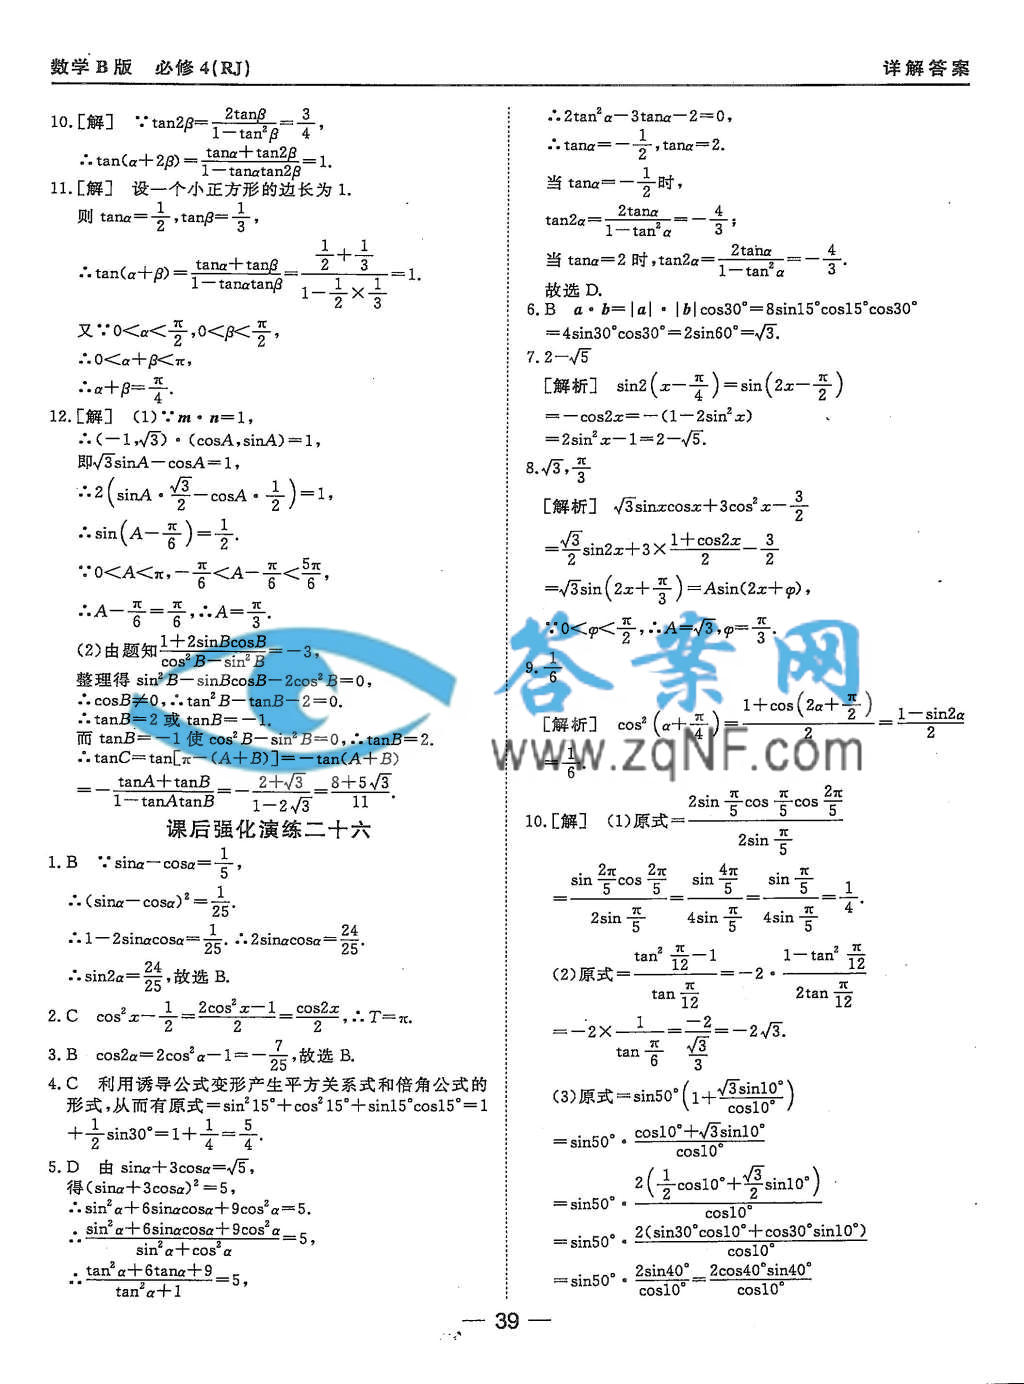 数学 B 版 必修 4(RJ)
详解答案
10.[解] ∵tan2β=2tanβ/(1-tan²β)=3/4,
∴tan(α+2β)=(tanα+tan2β)/(1-tanαtan2β)=1.
11.[解] 设一个小正方形的边长为 1.
则 tanα=1/2,tanβ=1/3,
∴tan(α+β)=(tanα+tanβ)/(1-tanαtanβ)=(1/2+1/3)/(1-1/2×1/3)=1.
又∵0<α<π/2,0<β<π/2,
∴0<α+β<π,
∴α+β=π/4.
12.[解] (1)∵m·n=1,
∴(-1,√3)·(cosA,sinA)=1,
即√3sinA-cosA=1,
∴2(sinA·√3/2-cosA·1/2)=1,
∴sin(A-π/6)=1/2.
∵0<A<π,-π/6<A-π/6<5π/6,
∴A-π/6=π/6,∴A=π/3.
(2)由题知(1+2sinBcosB)/(cos²B-sin²B)=-3,
整理得 sin²B-sinBcosB-2cos²B=0,
∴cosB≠0,∴tan²B-tanB-2=0.
∴tanB=2 或 tanB=-1.
而 tanB=-1 使 cos²B-sin²B=0,∴tanB=2.
∴tanC=tan[π-(A+B)]=-tan(A+B)
=-(tanA+tanB)/(1-tanAtanB)=-(2+√3)/(1-2√3)=(8+5√3)/11.
课后强化演练二十六
1.B ∵sinα-cosα=1/5,
∴(sinα-cosα)²=1/25.
∴1-2sinαcosα=1/25.∴2sinαcosα=24/25.
∴sin2α=24/25,故选 B.
2.C cos²x-1/2=(2cos²x-1)/2=cos2x/2,∴T=π.
3.B cos2α=2cos²α-1=-7/25,故选 B.
4.C 利用诱导公式变形产生平方关系式和倍角公式的
形式,从而有原式=sin²15°+cos²15°+sin15°cos15°=1
+1/2sin30°=1+1/4=5/4.
5.D 由 sinα+3cosα=√5,
得(sinα+3cosα)²=5,
∴sin²α+6sinαcosα+9cos²α=5.
∴(sin²α+6sinαcosα+9cos²α)/(sin²α+cos²α)=5,
∴(tan²α+6tanα+9)/(tan²α+1)=5,
∴2tan²α-3tanα-2=0,
∴tanα=-1/2,tanα=2.
当 tanα=-1/2时,
tan2α=2tanα/(1-tan²α)=-4/3;
当 tanα=2 时,tan2α=2tanα/(1-tan²α)=-4/3.
故选 D.
6.B a·b=|a|·|b|cos30°=8sin15°cos15°cos30°
=4sin30°cos30°=2sin60°=√3.
7.2-√5
[解析] sin2(x-π/4)=sin(2x-π/2)
=-cos2x=-(1-2sin²x)
=2sin²x-1=2-√5.
8.√3,π/3
[解析] √3sinxcosx+3cos²x-3/2
=√3/2sin2x+3×(1+cos2x)/2-3/2
=√3sin(2x+π/3)=Asin(2x+φ),
∵0<φ<π/2,∴A=√3,φ=π/3.
9.1/6
[解析] cos²(α+π/4)=(1+cos(2α+π/2))/2=(1-sin2α)/2
=1/6.
10.[解] (1)原式=(2sinπ/5cosπ/5cos2π/5)/(2sinπ/5)
=(sin2π/5cos2π/5)/(2sinπ/5)=(sin4π/5)/(4sinπ/5)=(sinπ/5)/(4sinπ/5)=1/4.
(2)原式=(tan²π/12-1)/(tanπ/12)=-2·(1-tan²π/12)/(2tanπ/12)
=-2×1/(tanπ/6)=-2/(√3/3)=-2√3.
(3)原式=sin50°(1+√3sin10°/cos10°)
=sin50°·(cos10°+√3sin10°)/cos10°
=sin50°·2(1/2cos10°+√3/2sin10°)/cos10°
=sin50°·2(sin30°cos10°+cos30°sin10°)/cos10°
=sin50°·2sin40°/cos10°=2cos40°sin40°/cos10°
— 39 —
答案网
www.zqNF.com